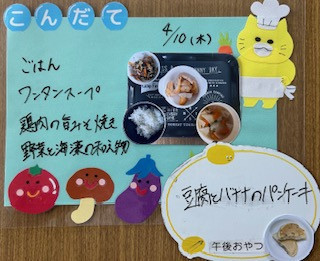 こんだて
4/10(木)
ごはん
ワンタンスープ
鶏肉の旨みそ焼き
野菜と海藻の和え物
豆腐とバナナのパンケーキ
午後おやつ